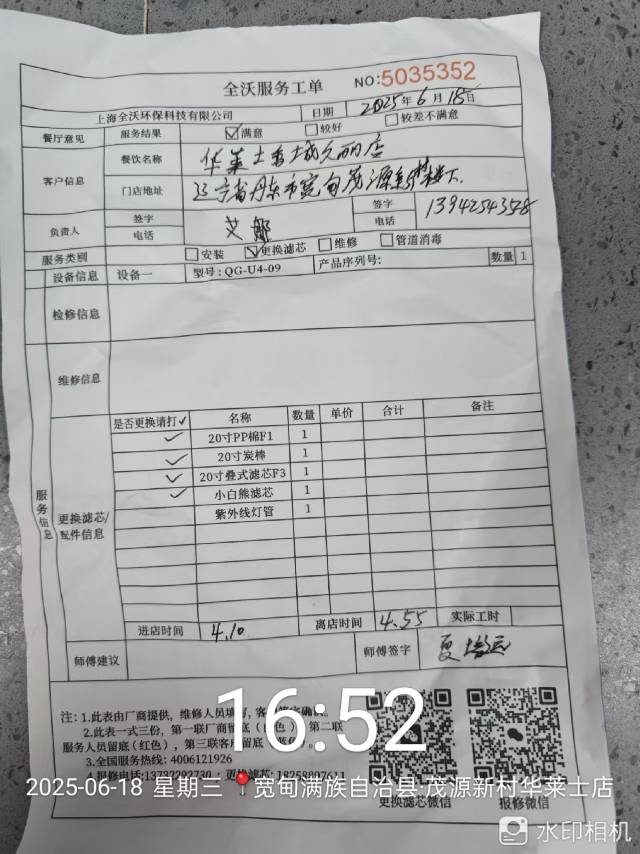 全沃服务工单 NO:5035352
上海全沃环保科技有限公司 日期 2025年6月18日
餐厅意见 服务结果 ☑满意 □较好 □较差不满意
客户信息 餐饮名称 华莱士
门店地址 辽宁省丹东市宽甸茂源新村楼下
负责人 签字 电话 艾娜 签字 电话 13942543558
服务类别 □安装 ☑更换滤芯 □维修 □管道消毒
设备信息 设备一 型号:QG-U4-09 产品序列号: 数量 1
检修信息
维修信息
服务信息
更换滤芯/配件信息
是否更换请打✓ 名称 数量 单价 合计 备注
✓ 20寸PP棉F1 1
✓ 20寸炭棒 1
✓ 20寸叠式滤芯F3 1
✓ 小白熊滤芯 1
紫外线灯管 1
进店时间 4.10 离店时间 4.55 实际工时
师傅建议 师傅签字 夏
注:1.此表由厂商提供,维修人员填写,客户签字确认。
2.此表一式三份,第一联厂商留底(白色),第二联
服务人员留底(红色),第三联客户留底(蓝色)。
3.全国服务热线:4006121926
4.报修电话:13732292730 更换滤芯:18258807611
更换滤芯微信 报修微信
16:52
2025-06-18 星期三 宽甸满族自治县·茂源新村华莱士店
水印相机